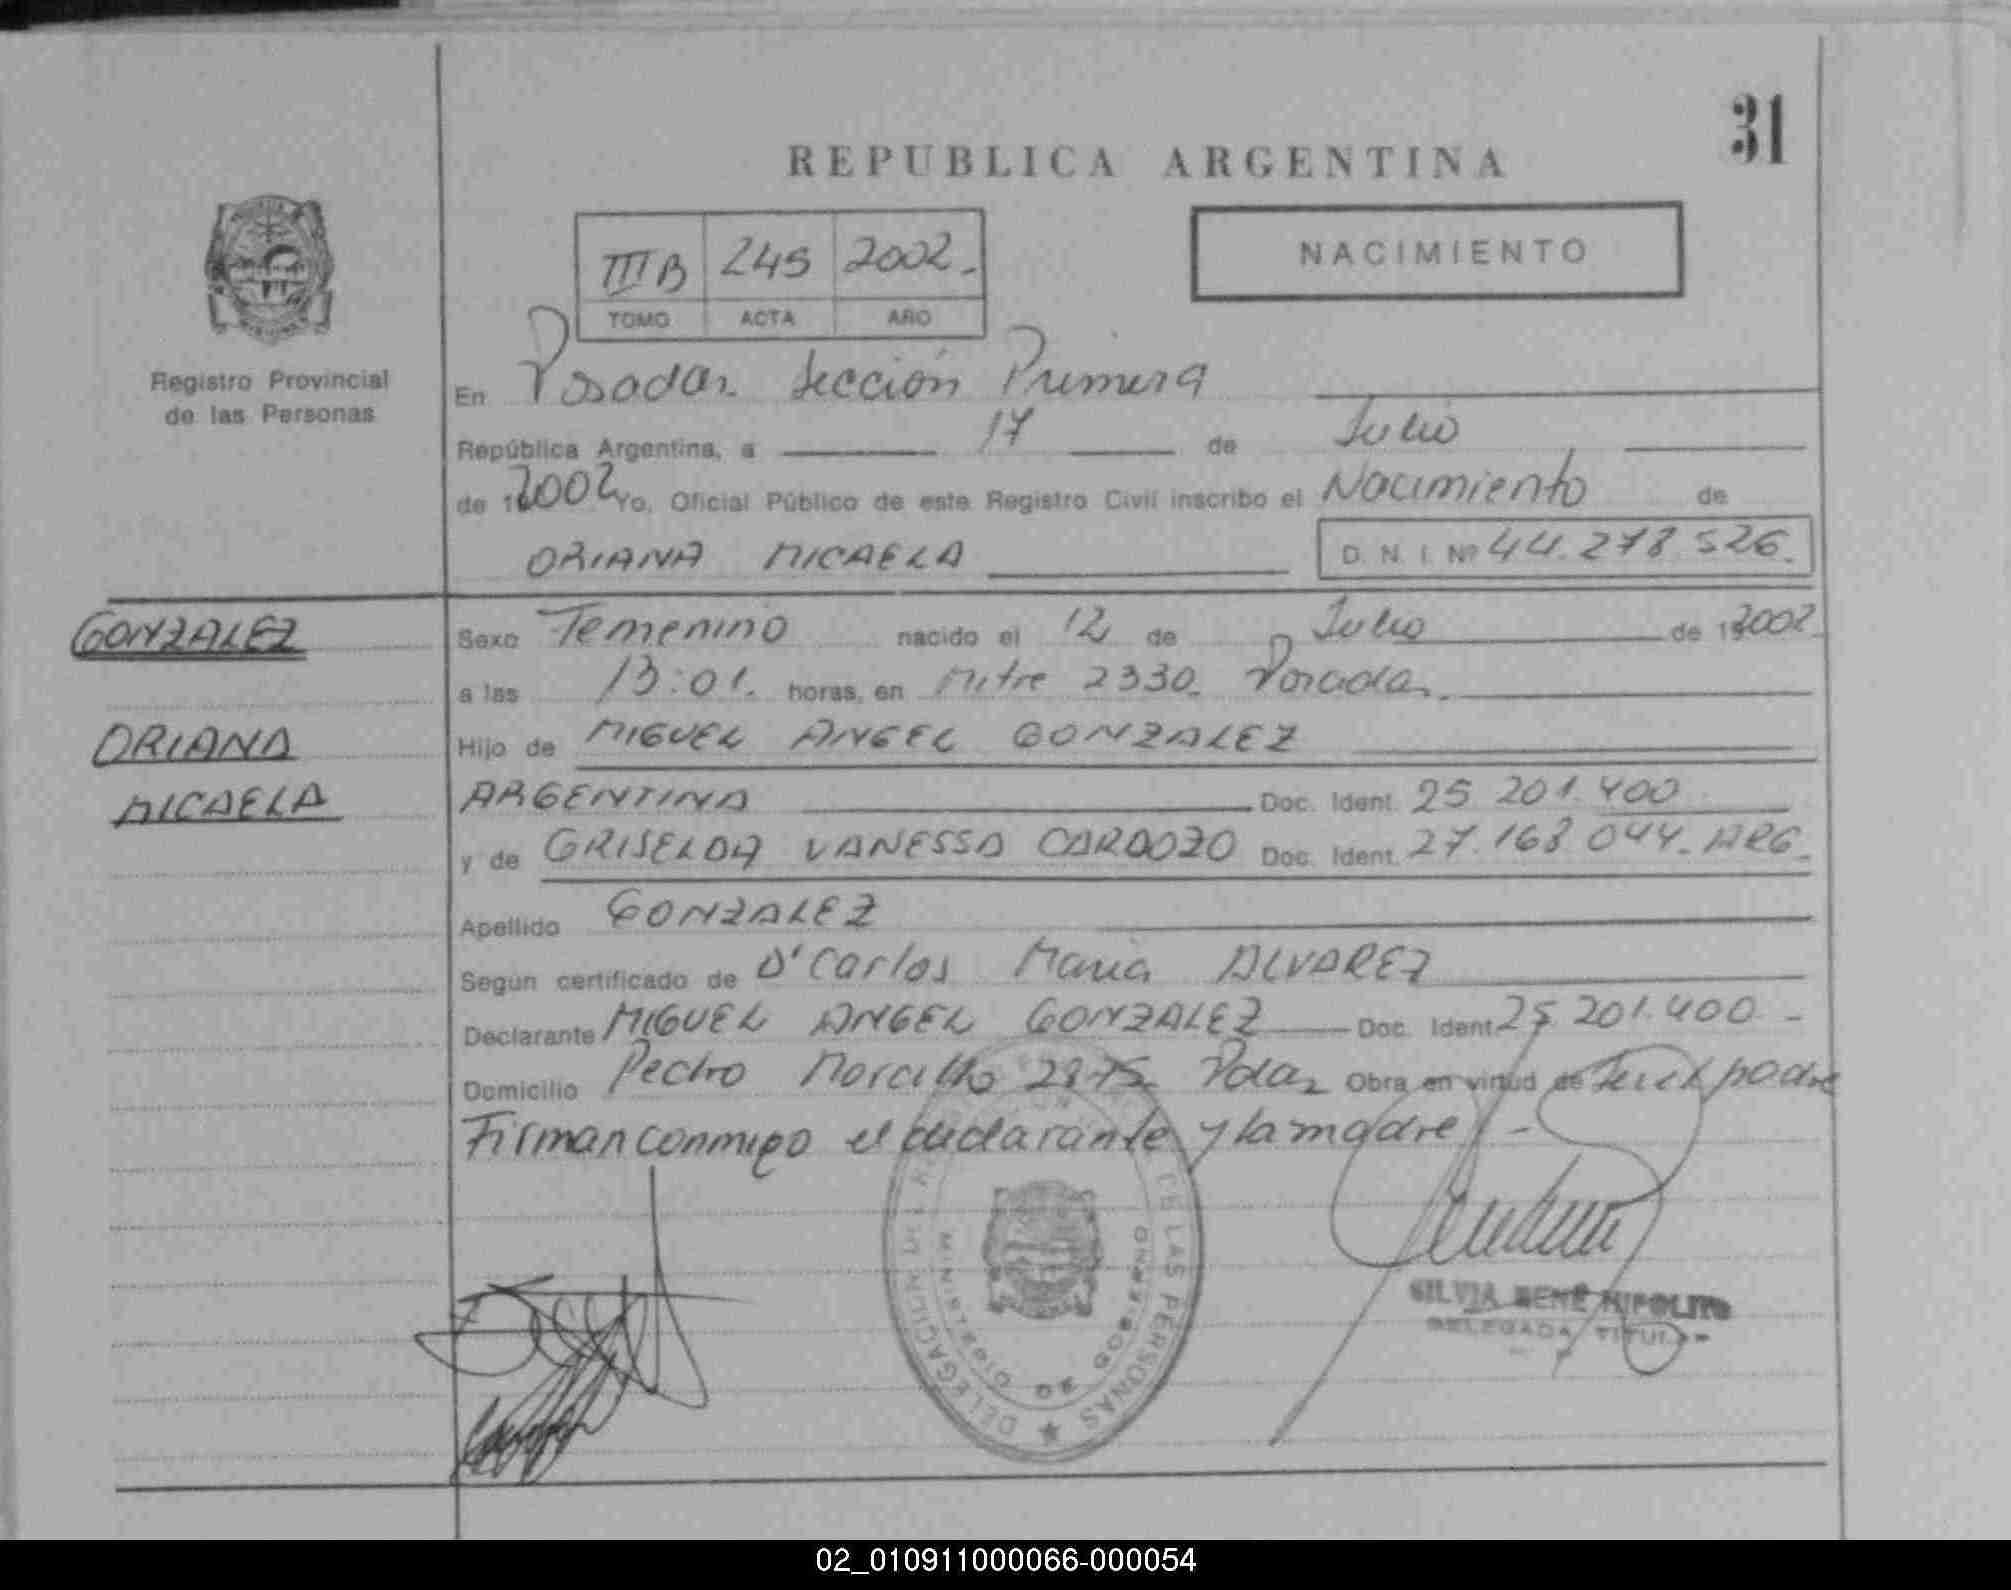 31
REPUBLICA ARGENTINA
NACIMIENTO
III B 245 2002.
TOMO ACTA AÑO
Registro Provincial
de las Personas
En Posadas Sección Primera
República Argentina, a 17 de Julio
de 2002 Yo, Oficial Público de este Registro Civil inscribo el Nacimiento de
ORIANA MICAELA D. N. I. Nº 44.278.526.
GONZALEZ
ORIANA
MICAELA
Sexo Femenino nacido el 12 de Julio de 2002
a las 13:01. horas, en Mitre 2330. Posadas.
Hijo de MIGUEL ANGEL GONZALEZ
ARGENTINA Doc. Ident. 25 201.400
y de GRISELDA VANESSA CARDOZO Doc. Ident. 27.168 044. ARG.
Apellido GONZALEZ
Según certificado de D' Carlos Maria ALVAREZ
Declarante MIGUEL ANGEL GONZALEZ Doc. Ident. 25 201.400 -
Domicilio Pedro Morcillo 2875 Pdas Obra en virtud de ser el padre
Firman conmigo el declarante y la madre -
DELEGACION DEL DE LAS PERSONAS
MINISTERIO DE GOBIERNO
SILVIA RENÉ HIPOLITO
DELEGADA TITULAR
02_010911000066-000054